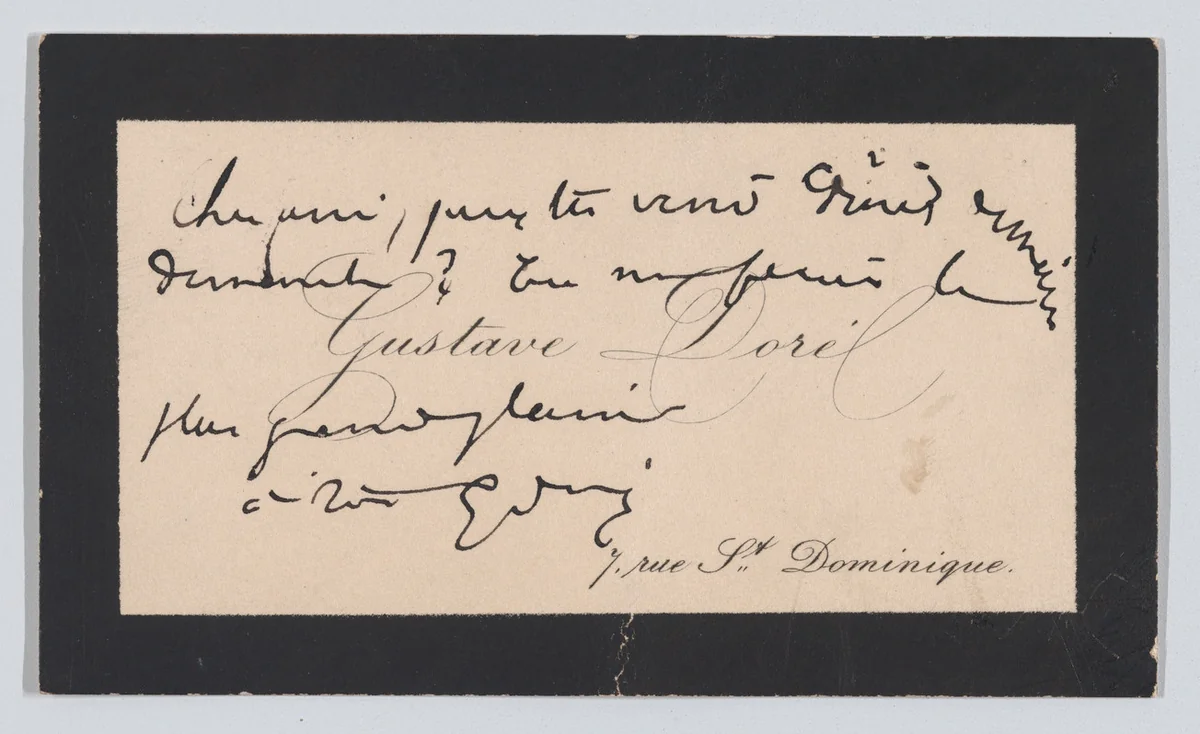 Cher ami, peux tu venir dîner demain
Dimanche ? Tu me feras le
Gustave Doré
plus grand plaisir
à toi
7, rue St. Dominique.